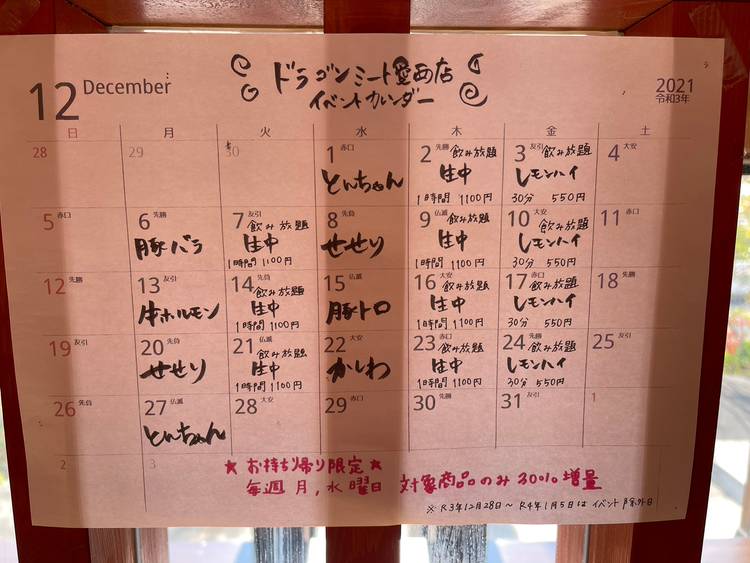 ドラゴンミート愛西店
イベントカレンダー
12 December
2021
令和3年
日 月 火 水 木 金 土
28 29 30 1 赤口 2 先勝 3 友引 4 大安
とんちゃん
飲み放題 生中 1時間 1100円
飲み放題 レモンハイ 30分 550円
5 赤口 6 先勝 7 友引 8 先負 9 仏滅 10 大安 11 赤口
豚バラ
飲み放題 生中 1時間 1100円
せせり
飲み放題 生中 1時間 1100円
飲み放題 レモンハイ 30分 550円
12 先勝 13 友引 14 先負 15 仏滅 16 大安 17 赤口 18 先勝
牛ホルモン
飲み放題 生中 1時間 1100円
豚トロ
飲み放題 生中 1時間 1100円
飲み放題 レモンハイ 30分 550円
19 友引 20 先負 21 仏滅 22 大安 23 赤口 24 先勝 25 友引
せせり
飲み放題 生中 1時間 1100円
かしわ
飲み放題 生中 1時間 1100円
飲み放題 レモンハイ 30分 550円
26 先負 27 仏滅 28 大安 29 赤口 30 先勝 31 友引 1
とんちゃん
2 3
★お持ち帰り限定★
毎週月,水曜日 対象商品のみ30%増量
※R3年12月28日〜R4年1月5日はイベント除外日